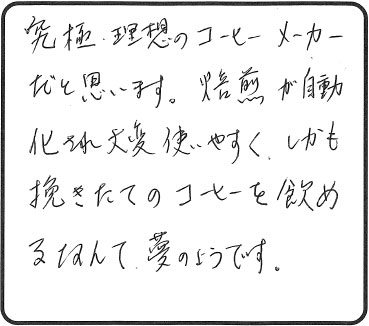 究極・理想のコーヒーメーカー
だと思います。焙煎が自動
化され大変使いやすく、しかも
挽きたてのコーヒーを飲め
るなんて、夢のようです。